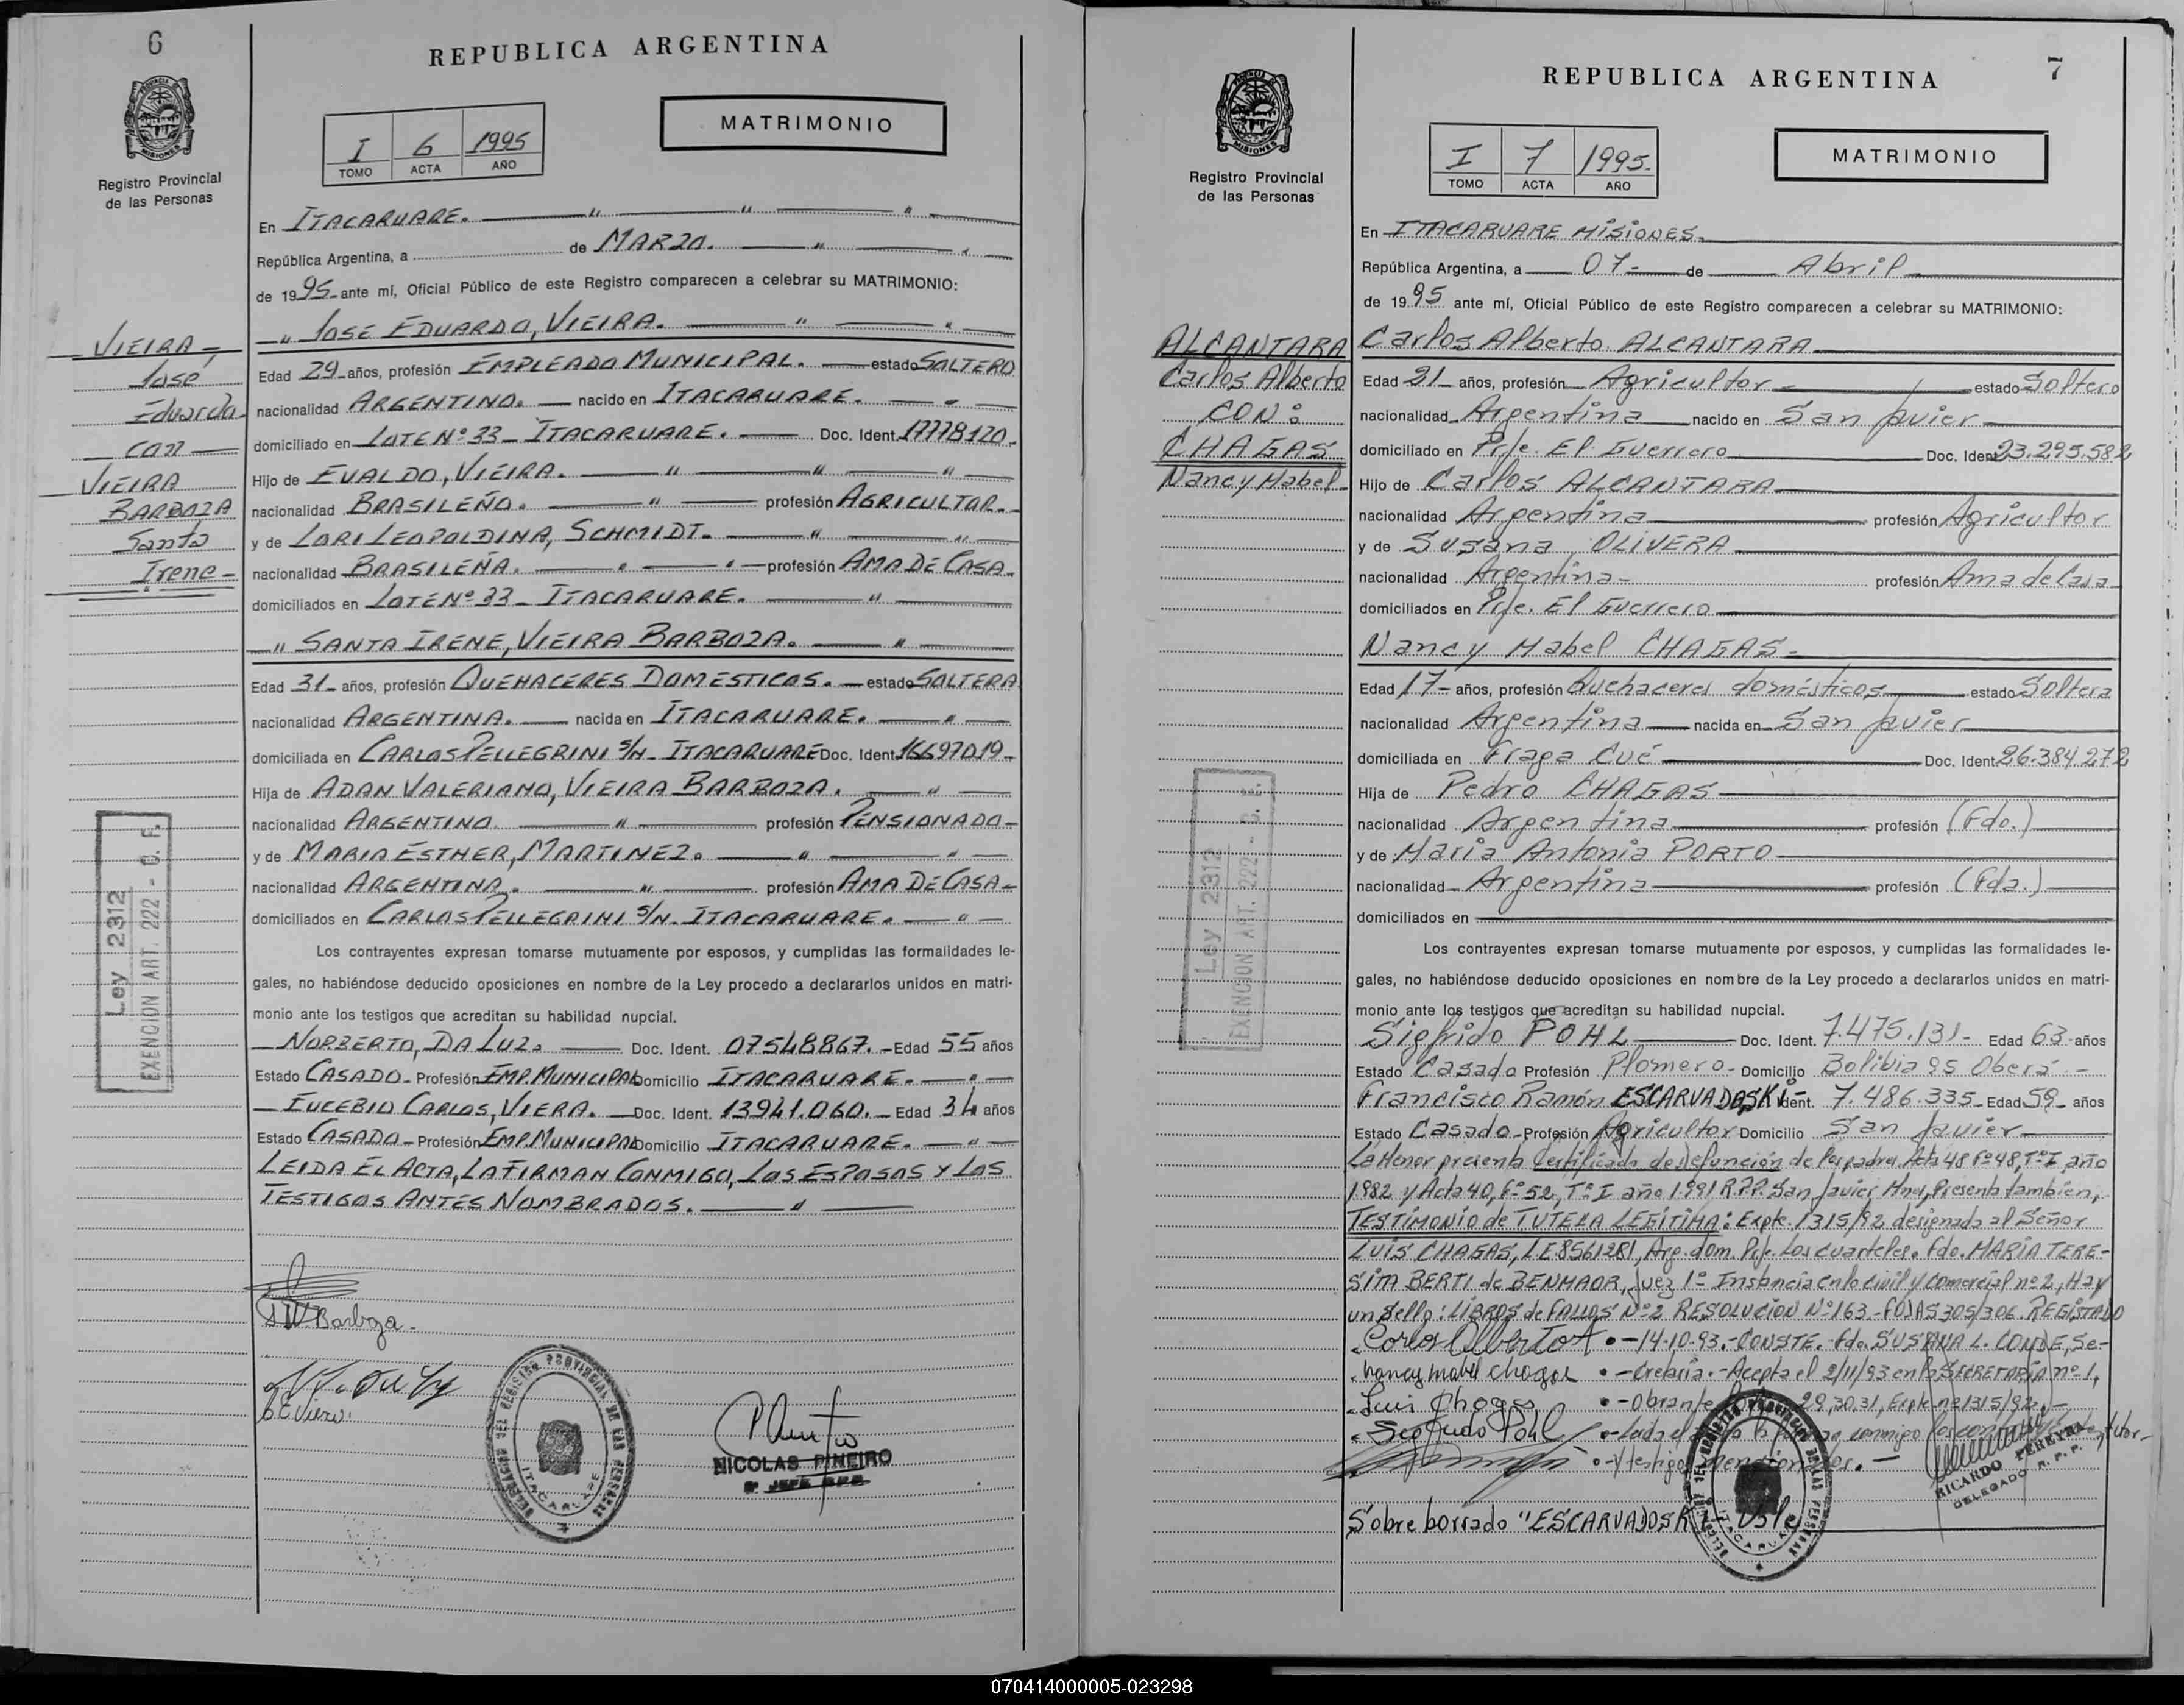 6
REPUBLICA ARGENTINA
PROVINCIA DE MISIONES
Registro Provincial
de las Personas
I 6 1995
TOMO ACTA AÑO
MATRIMONIO
En ITACARUARE.
República Argentina, a de MARZO.
de 1995 ante mí, Oficial Público de este Registro comparecen a celebrar su MATRIMONIO:
VIEIRA -
José
Eduardo
con
VIEIRA
BARBOZA
Santa
Irene -
JOSÉ EDUARDO, VIEIRA.
Edad 29 años, profesión EMPLEADO MUNICIPAL. estado SOLTERO
nacionalidad ARGENTINO. nacido en ITACARUARE.
domiciliado en LOTE Nº 33 - ITACARUARE. Doc. Ident. 17778120.
Hijo de EVALDO, VIEIRA.
nacionalidad BRASILEÑO. profesión AGRICULTOR.
y de LORI LEOPOLDINA, SCHMIDT.
nacionalidad BRASILEÑA. profesión AMA DE CASA.
domiciliados en LOTE Nº 33 - ITACARUARE.
SANTA IRENE, VIEIRA BARBOZA.
Edad 31 años, profesión QUEHACERES DOMESTICOS. estado SOLTERA
nacionalidad ARGENTINA. nacida en ITACARUARE.
domiciliada en CARLOS PELLEGRINI S/N - ITACARUARE Doc. Ident. 16697019
Hija de ADAN VALERIANO, VIEIRA BARBOZA.
nacionalidad ARGENTINO. profesión PENSIONADO
y de MARIA ESTHER, MARTINEZ.
nacionalidad ARGENTINA. profesión AMA DE CASA
domiciliados en CARLOS PELLEGRINI S/N - ITACARUARE.
Los contrayentes expresan tomarse mutuamente por esposos, y cumplidas las formalidades le-
gales, no habiéndose deducido oposiciones en nombre de la Ley procedo a declararlos unidos en matri-
monio ante los testigos que acreditan su habilidad nupcial.
NORBERTO, DA LUZ. Doc. Ident. 07548867. Edad 55 años
Estado CASADO - Profesión EMP. MUNICIPAL Domicilio ITACARUARE.
EUCEBIO CARLOS, VIERA. Doc. Ident. 13941.060. Edad 34 años
Estado CASADO - Profesión EMP. MUNICIPAL Domicilio ITACARUARE.
LEIDA EL ACTA, LA FIRMAN CONMIGO, LOS ESPOSOS Y LOS
TESTIGOS ANTES NOMBRADOS.
Ley 2312
EXENCION ART. 222 - C. F.
NICOLAS PIÑEIRO
ITACARUARE
7
REPUBLICA ARGENTINA
PROVINCIA DE MISIONES
Registro Provincial
de las Personas
I 7 1995.
TOMO ACTA AÑO
MATRIMONIO
En ITACARUARE MISIONES.
República Argentina, a 07- de Abril
de 1995 ante mí, Oficial Público de este Registro comparecen a celebrar su MATRIMONIO:
ALCANTARA
Carlos Alberto
CON:
CHAGAS
Nancy Mabel
Carlos Alberto ALCANTARA
Edad 21 años, profesión Agricultor estado Soltero
nacionalidad Argentina nacido en San Javier
domiciliado en Pje. El Guerrero Doc. Ident. 23.295.582
Hijo de Carlos ALCANTARA
nacionalidad Argentina profesión Agricultor
y de Susana OLIVERA
nacionalidad Argentina profesión Ama de Casa
domiciliados en Pje. El Guerrero
Nancy Mabel CHAGAS
Edad 17 años, profesión Quehaceres domésticos estado Soltera
nacionalidad Argentina nacida en San Javier
domiciliada en Fraga Cué Doc. Ident. 26.384.272
Hija de Pedro CHAGAS
nacionalidad Argentina profesión (Fdo.)
y de Maria Antonia PORTO
nacionalidad Argentina profesión (Fda.)
domiciliados en
Los contrayentes expresan tomarse mutuamente por esposos, y cumplidas las formalidades le-
gales, no habiéndose deducido oposiciones en nombre de la Ley procedo a declararlos unidos en matri-
monio ante los testigos que acreditan su habilidad nupcial.
Sigfrido POHL Doc. Ident. 7.475.131- Edad 63 años
Estado Casado Profesión Plomero - Domicilio Bolibia 95 Oberá -
Francisco Ramón ESCARVADOSKI Ident. 7.486.335 Edad 59 años
Estado Casado Profesión Agricultor Domicilio San Javier
La Menor presenta Certificado de Defunción de los padres Acta 48 Fº 48, Tº I año
1982 y Acta 40, Fº 52, Tº I año 1991 R.P.P. San Javier, Mnes, Presenta tambien,
TESTIMONIO de TUTELA LEGITIMA: Expte. 1315/92 designado al Señor
LUIS CHAGAS, L.E. 8561281, Arg. dom. Pje. Los Cuarteles. Fdo. MARIA TERE-
SITA BERTI de BENMAOR, Juez 1º Instancia en lo Civil y Comercial nº 2, Hay
un sello: LIBROS de FALLOS Nº 2 RESOLUCION Nº 163 - FOJAS 305/306. REGISTRADO
Carlos Alberto A - 14-10-93.- CONSTE. Fdo. SUSANA L. CONDE, Se-
nancy mabel chagas - cretaria.- Acepta el 2/11/93 en la SECRETARIA nº 1,
Luis Chagas - Obrante 29,30,31, Expte nº 1315/92.-
Sigfrido Pohl - Leida el conmigo los tutor-
y testigos mencionados. -
RICARDO PEREYRA
DELEGADO R. P. P.
Sobre borrado "ESCARVADOSKI" Vale
Ley 2312
EXENCION ART. 222 - C. F.
ITACARUARE
070414000005-023298